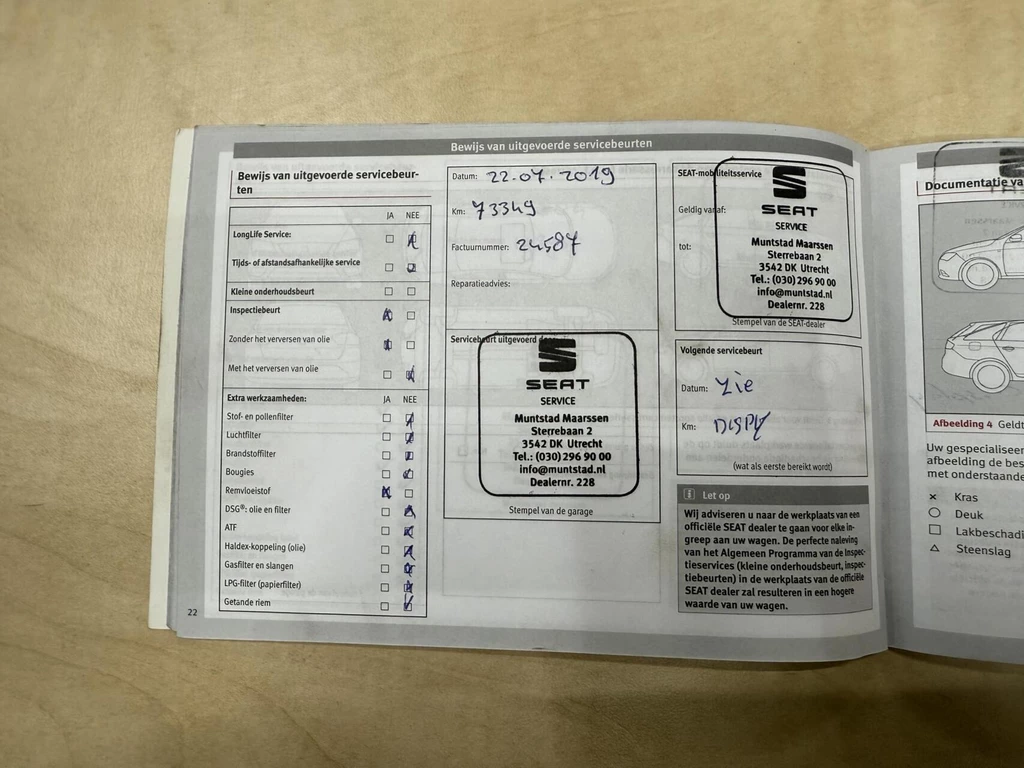 Bewijs van uitgevoerde servicebeurten
Bewijs van uitgevoerde servicebeur-
ten
JA NEE
LongLife Service:
Tijds- of afstandsafhankelijke service
Kleine onderhoudsbeurt
Inspectiebeurt
Zonder het verversen van olie
Met het verversen van olie
Extra werkzaamheden: JA NEE
Stof- en pollenfilter
Luchtfilter
Brandstoffilter
Bougies
Remvloeistof
DSG®: olie en filter
ATF
Haldex-koppeling (olie)
Gasfilter en slangen
LPG-filter (papierfilter)
Getande riem
22
Datum: 22.07.2019
Km: 73349
Factuurnummer: 24587
Reparatieadvies:
Servicebeurt uitgevoerd
SEAT
SERVICE
Muntstad Maarssen
Sterrebaan 2
3542 DK Utrecht
Tel.: (030) 296 90 00
info@muntstad.nl
Dealernr. 228
Stempel van de garage
SEAT-mobiliteitsservice
Geldig vanaf:
tot:
SEAT
SERVICE
Muntstad Maarssen
Sterrebaan 2
3542 DK Utrecht
Tel.: (030) 296 90 00
info@muntstad.nl
Dealernr. 228
Stempel van de SEAT-dealer
Volgende servicebeurt
Datum: Zie
Km: Disply
(wat als eerste bereikt wordt)
i Let op
Wij adviseren u naar de werkplaats van een
officiële SEAT dealer te gaan voor elke in-
greep aan uw wagen. De perfecte naleving
van het Algemeen Programma van de Inspec-
tieservices (kleine onderhoudsbeurt, inspec-
tiebeurten) in de werkplaats van de officiële
SEAT dealer zal resulteren in een hogere
waarde van uw wagen.
Documentatie va
Afbeelding 4 Geldt
Uw gespecialiseer
afbeelding de bes
met onderstaande
× Kras
○ Deuk
□ Lakbeschadi
△ Steenslag